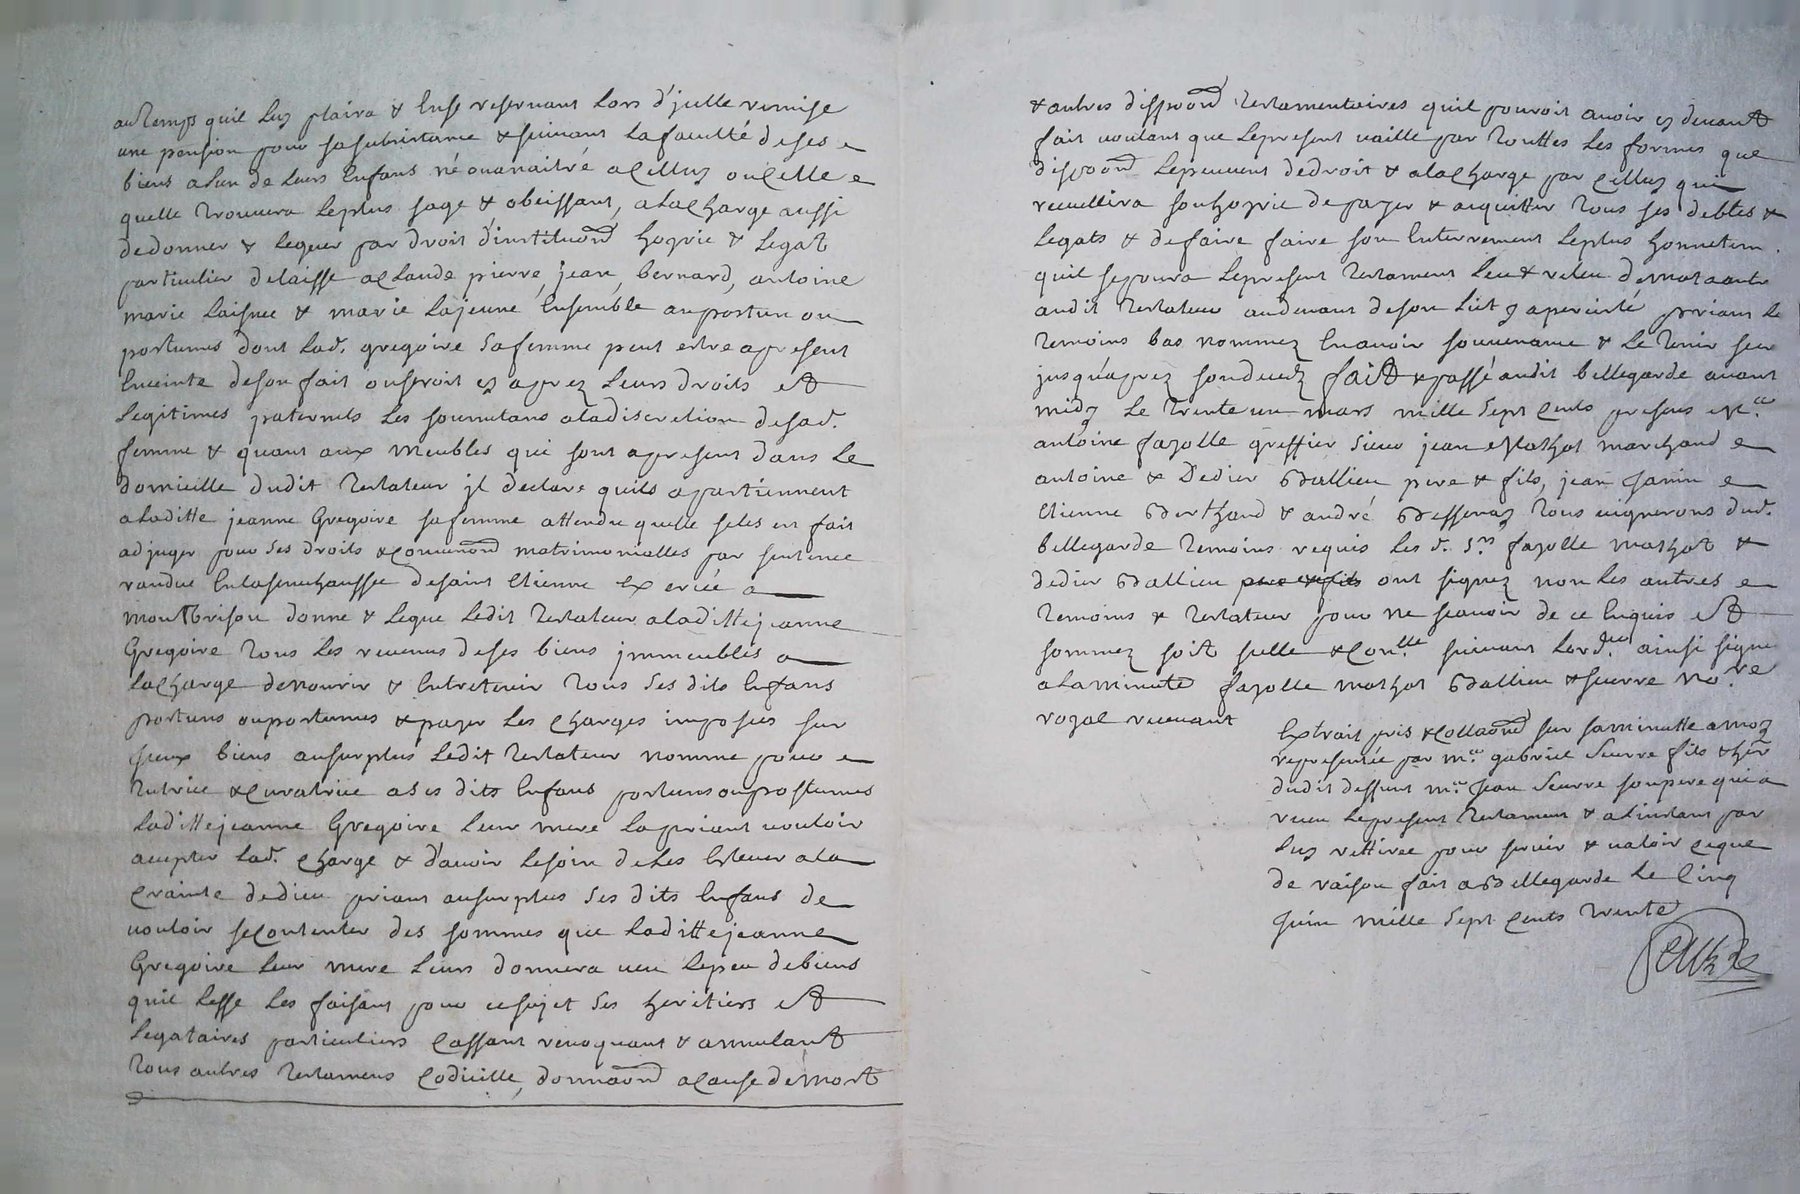 autemps quil luy plaira & Ense reservant Lors d'jcelle remise
une pension pour sasubsistance & suivant Lafaculté deses
biens alun de Leurs Enfans né ouanaitré acelluy ouCelle
quelle trouvera Leplus sage & obeissant, alaCharge aussi
dedonner & leguer par droit d'institu̅on̅ hoyrie & Legat
particulier delaisse aClaude, pierre, jean, bernard, antoine
marie Laisnee & marie Lajeune Ensemble auposthume ou
postumes dont Lad. gregoire safemme peut estre apresent
Enceinte deson fait ouseroit cy aprez Leurs droits et
Legitimes paternels Les soumetans aladiscretion desad.
femme & quant aux meubles qui sont apresent dans Le
domicille dudit testateur jl declare quils apartiennent
aladitte jeanne Gregoire safemme attendu quelle seles est fait
adjuger pour ses droits & conven̅on̅ matrimonialles par sentence
randue Enlasenechaussee desaint Etienne Exercée a
montbrison donne & Legue Ledit testateur aladitte jeanne
Gregoire tous Les revenus deses biens jmmeubles a
laCharge denourir & Entretenir tous ses dits Enfans
postums oupostumes & payer Les Charges imposées sur
sieux biens ausurplus Ledit testateur nomme pour
tutrice & Curatrice ases dits Enfans postumsoupostumes
Laditte jeanne Gregoire Leur mere Lapriant vouloir
accepter Lad. Charge & d'avoir Lesoin deLes Eslever ala
Crainte dedieu priant ausurplus ses dits Enfans de
vouloir seContenter des sommes que Ladittejeanne
Gregoire leur mere Leurs donnera veu Lepeu debiens
quil Lesse Les faisant pour cesujet ses heritiers et
Legataires particuliers Cassant revoquant & annulant
tous autres testamens Codicille, dona̅on̅ aCause demort
& autres dispo̅on̅ testamentaires quil pouroit avoir cy devant
fait voulant que Lepresent vaille par touttes Les formes que
dispo̅on̅ Lepeuvent dedroit & alaCharge par Celluy qui
recueillira sonhoyrie depayer & acquitter tous ses debtes &
Legats & defaire faire son Enterrement Leplus honnetem.
quil sepoura Lepresent testament Leu & releu demotaautre
audit testateur audevant deson Lict y aperceité priant Le
temoins bas nommez Enavoir souvenance & Le tenir secr
jusquáprez sondecedz fait & passé audit bellegarde avant
midy Le trente un mars mille sept Cents presens Me.
antoine fayolle greffier sieur jean Mathot marchand
antoine & Dedier Ballieu pere & fils, jean Janin
Etienne Berthaud & andré Bessenay tous vignerons dud.
bellegarde temoins requis Les d. Srs fayolle mathot &
dedier Ballieu pere & fils ont signez non Les autres
temoins & testateur pour ne scavoir de ce Enquis et
sommez soit selle & Con.lle suivant Lord.ce ainsi signe
alaminute fayolle mathot Ballieu & seurre No.re
royal recevant
Extrait pris & Colla̅on̅é sur saminutte amoy
representée par Me. gabriel seurre fils & her.
dudit deffunt Me. Jean seurre sonpere qui a
receu Lepresent testament & alinstant par
Luy rettirée pour servir & valoir Ceque
de raison fait aBellegarde Le Cinq
Juin mille sept Cents trente